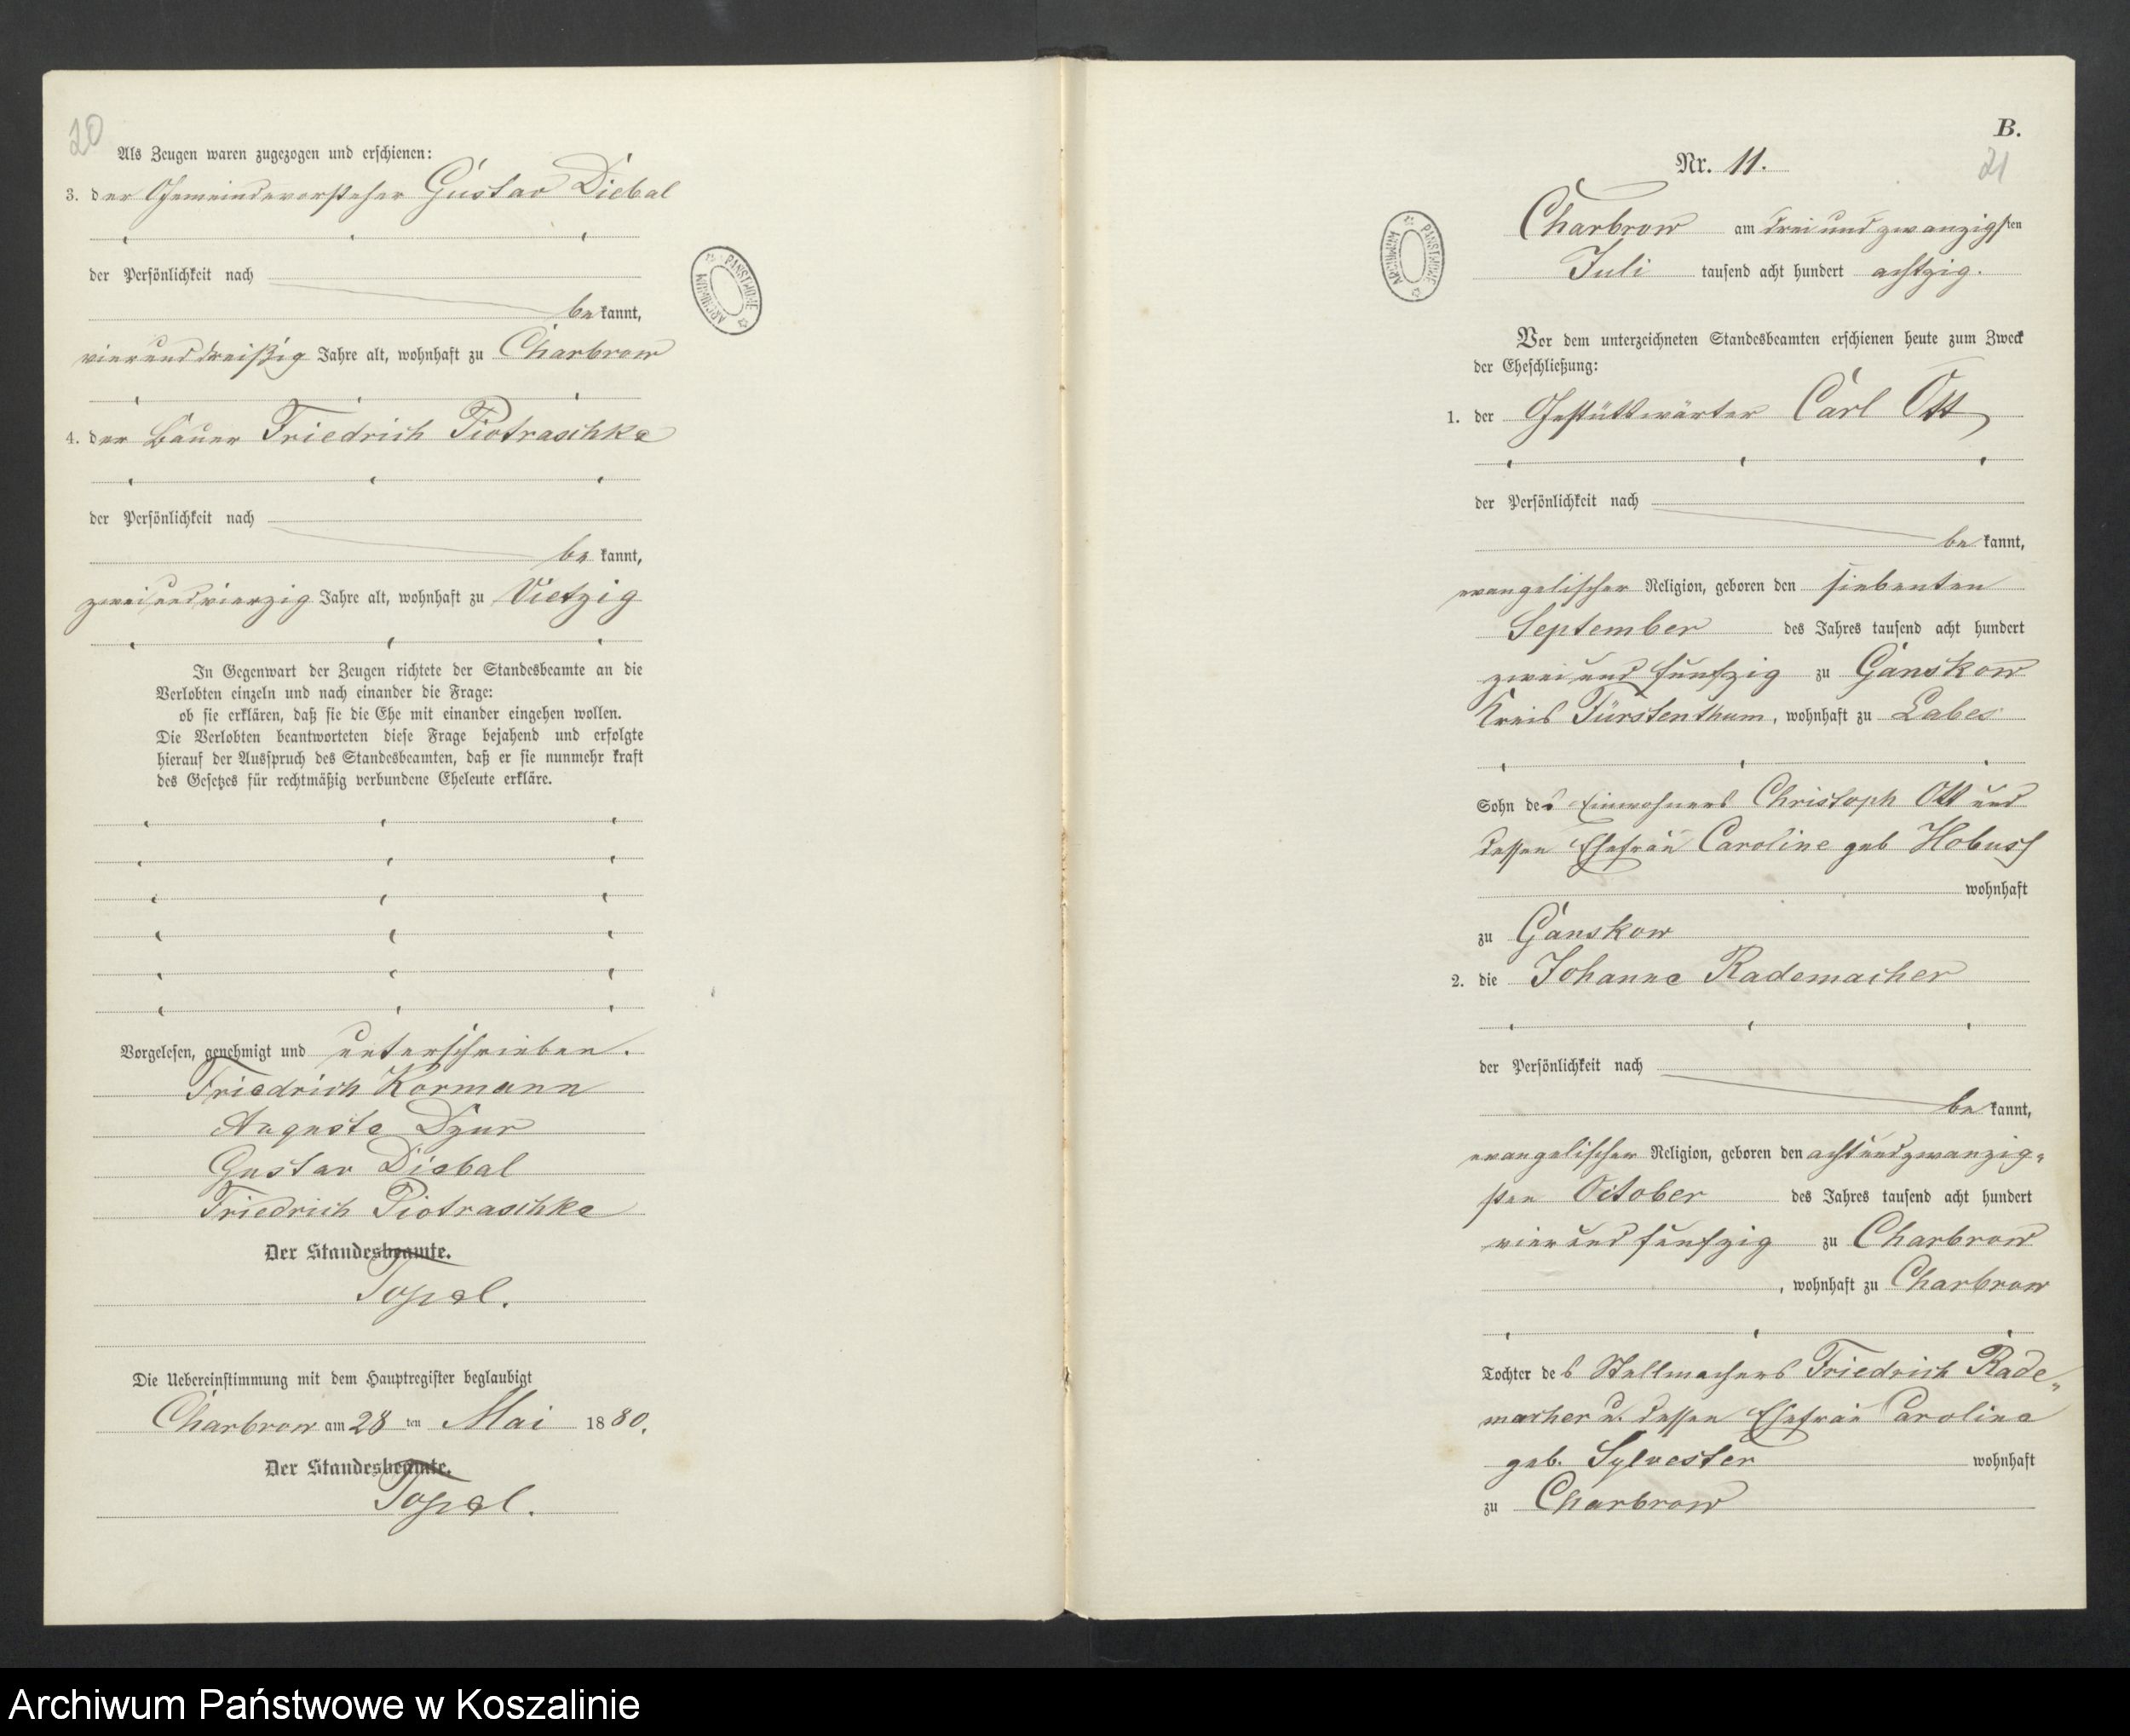 20
Als Zeugen waren zugezogen und erschienen:
3. der Gemeindevorsteher Gustav Diebal
der Persönlichkeit nach
be kannt,
vierunddreißig Jahre alt, wohnhaft zu Charbrow
4. der Bauer Friedrich Piotraschke
der Persönlichkeit nach
be kannt,
zweiundvierzig Jahre alt, wohnhaft zu Vietzig
In Gegenwart der Zeugen richtete der Standesbeamte an die
Verlobten einzeln und nach einander die Frage:
ob sie erklären, daß sie die Ehe mit einander eingehen wollen.
Die Verlobten beantworteten diese Frage bejahend und erfolgte
hierauf der Ausspruch des Standesbeamten, daß er sie nunmehr kraft
des Gesetzes für rechtmäßig verbundene Eheleute erkläre.
Vorgelesen, genehmigt und unterschrieben.
Friedrich Kormann
Auguste Dzur
Gustav Diebal
Friedrich Piotraschke
Der Standesbeamte.
Topel.
Die Uebereinstimmung mit dem Hauptregister beglaubigt
Charbrow am 28 ten Mai 1880.
Der Standesbeamte.
Topel.
ARCHIWUM PAŃSTWOWE
B.
21
Nr. 11.
Charbrow am drei und zwanzigsten
Juli tausend acht hundert achtzig.
ARCHIWUM PAŃSTWOWE
Vor dem unterzeichneten Standesbeamten erschienen heute zum Zweck
der Eheschließung:
1. der Gestütswärter Carl Ott
der Persönlichkeit nach
be kannt,
evangelischer Religion, geboren den siebenten
September des Jahres tausend acht hundert
zwei und funfzig zu Ganskow
Kreis Fürstenthum, wohnhaft zu Labes
Sohn des Einwohners Christoph Ott und
dessen Ehefrau Caroline geb Hobuss
wohnhaft
zu Ganskow
2. die Johanne Rademacher
der Persönlichkeit nach
be kannt,
evangelischer Religion, geboren den achtundzwanzig-
sten October des Jahres tausend acht hundert
vier und funfzig zu Charbrow
, wohnhaft zu Charbrow
Tochter des Stellmachers Friedrich Rade-
macher u. dessen Ehefrau Caroline
geb. Sylvester wohnhaft
zu Charbrow
Archiwum Państwowe w Koszalinie